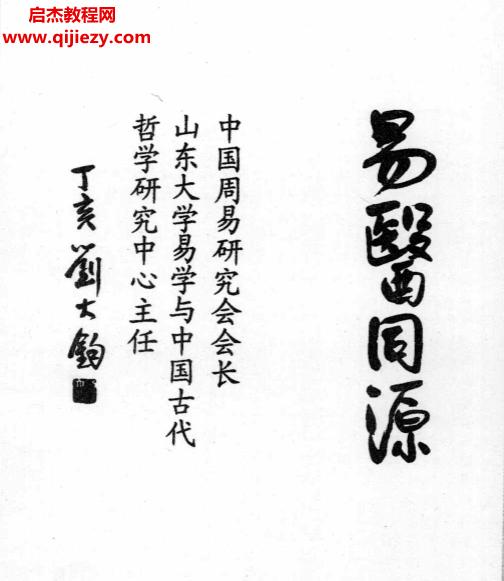 启杰教程网
www.qijiezy.com
易醫同源
中国周易研究会会长
山东大学易学与中国古代
哲学研究中心主任
丁亥劉大鈞